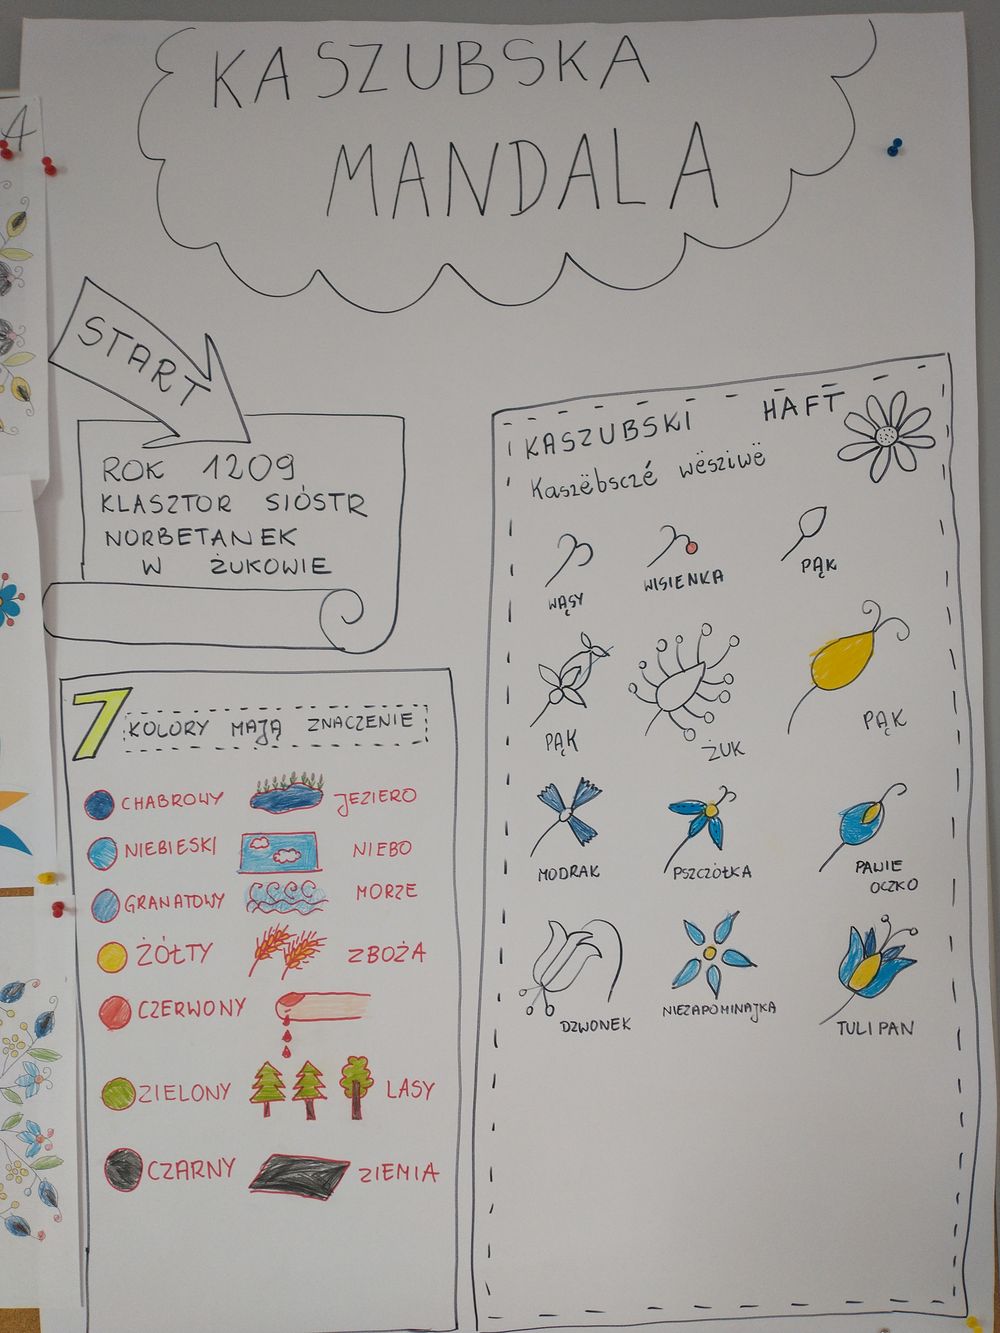 KASZUBSKA
MANDALA
START
ROK 1209
KLASZTOR SIÓSTR
NORBETANEK
W ŻUKOWIE
7 KOLORY MAJĄ ZNACZENIE
CHABROWY JEZIERO
NIEBIESKI NIEBO
GRANATOWY MORZE
ŻÓŁTY ZBOŻA
CZERWONY
ZIELONY LASY
CZARNY ZIEMIA
KASZUBSKI HAFT
Kaszëbsczé wësziwë
WĄSY WISIENKA PĄK
PĄK ŻUK PĄK
MODRAK PSZCZÓŁKA PAWIE
OCZKO
DZWONEK NIEZAPOMINAJKA TULIPAN
A